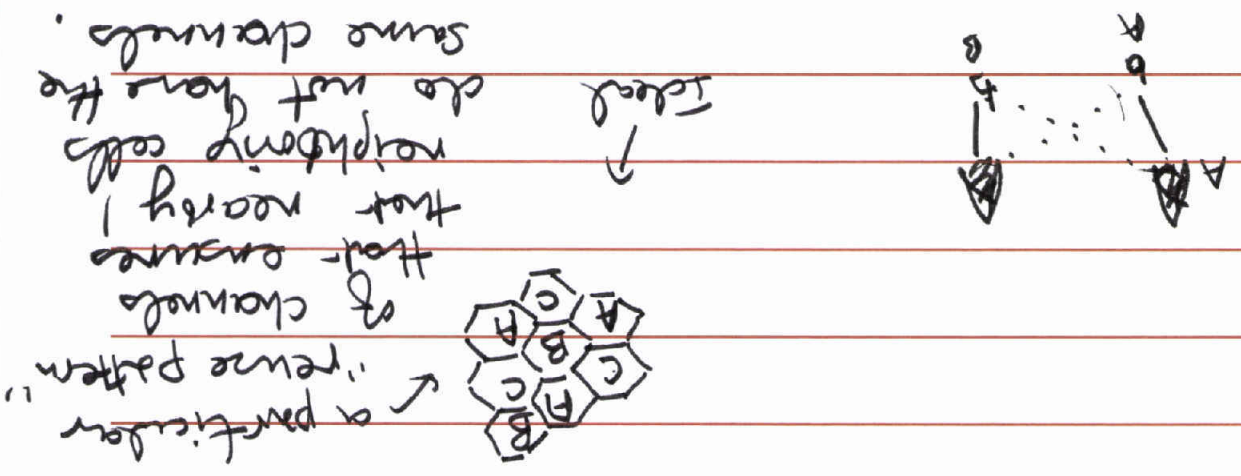 B
A C
C B A
A C
a particular
"reuse pattern"
of channels
that ensures
that nearby /
neighboring cells
do not have the
same channels.
Ideal
A
B
A